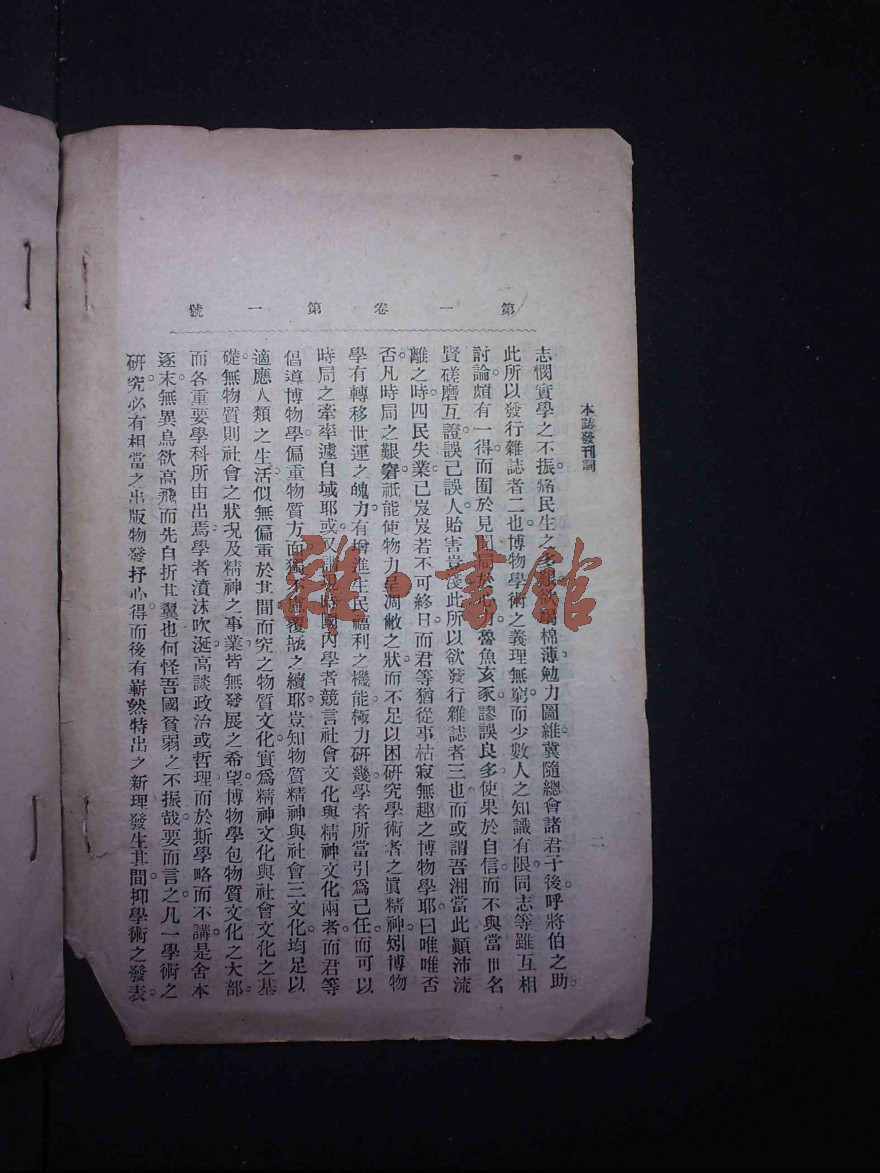 第一卷第一號
本誌發刊詞
二
志憫實學之不振。痛民生之多艱。欲竭棉薄。勉力圖維。冀隨總會諸君子後。呼將伯之助。
此所以發行雜誌者二也。博物學術之義理無窮。而少數人之知識有限。同志等雖互相
討論。頗有一得。而囿於見聞。局於地方。魯魚亥豕。謬誤良多。使果於自信。而不與當世名
賢磋磨互證。誤己誤人。貽害豈淺。此所以欲發行雜誌者三也。而或謂吾湘當此顚沛流
離之時。四民失業。已岌岌若不可終日。而君等猶從事枯寂無趣之博物學耶。曰唯唯否
否。凡時局之艱窘。祇能使物力呈凋敝之狀。而不足以困研究學術者之眞精神。矧博物
學有轉移世運之魄力。有增進生民福利之機能。極力研幾。學者所當引爲己任。而可以
時局之牽率。遽自域耶。或又謂
國內學者。競言社會文化與精神文化兩者。而君等
倡導博物學。偏重物質方面。獨不
覆瓿之續耶。豈知物質精神與社會三文化。均足以
適應人類之生活。似無偏重於其間。而究之物質文化。實爲精神文化與社會文化之基
礎。無物質。則社會之狀況及精神之事業。皆無發展之希望。博物學包物質文化之大部。
而各重要學科所由出焉。學者濆沫吹涎。高談政治或哲理。而於斯學略而不講。是舍本
逐末。無異鳥欲高飛而先自折其翼也。何怪吾國貧弱之不振哉。要而言之。凡一學術之
研究。必有相當之出版物發抒心得。而後有嶄然特出之新理發生其間。抑學術之發表。
雜·書館